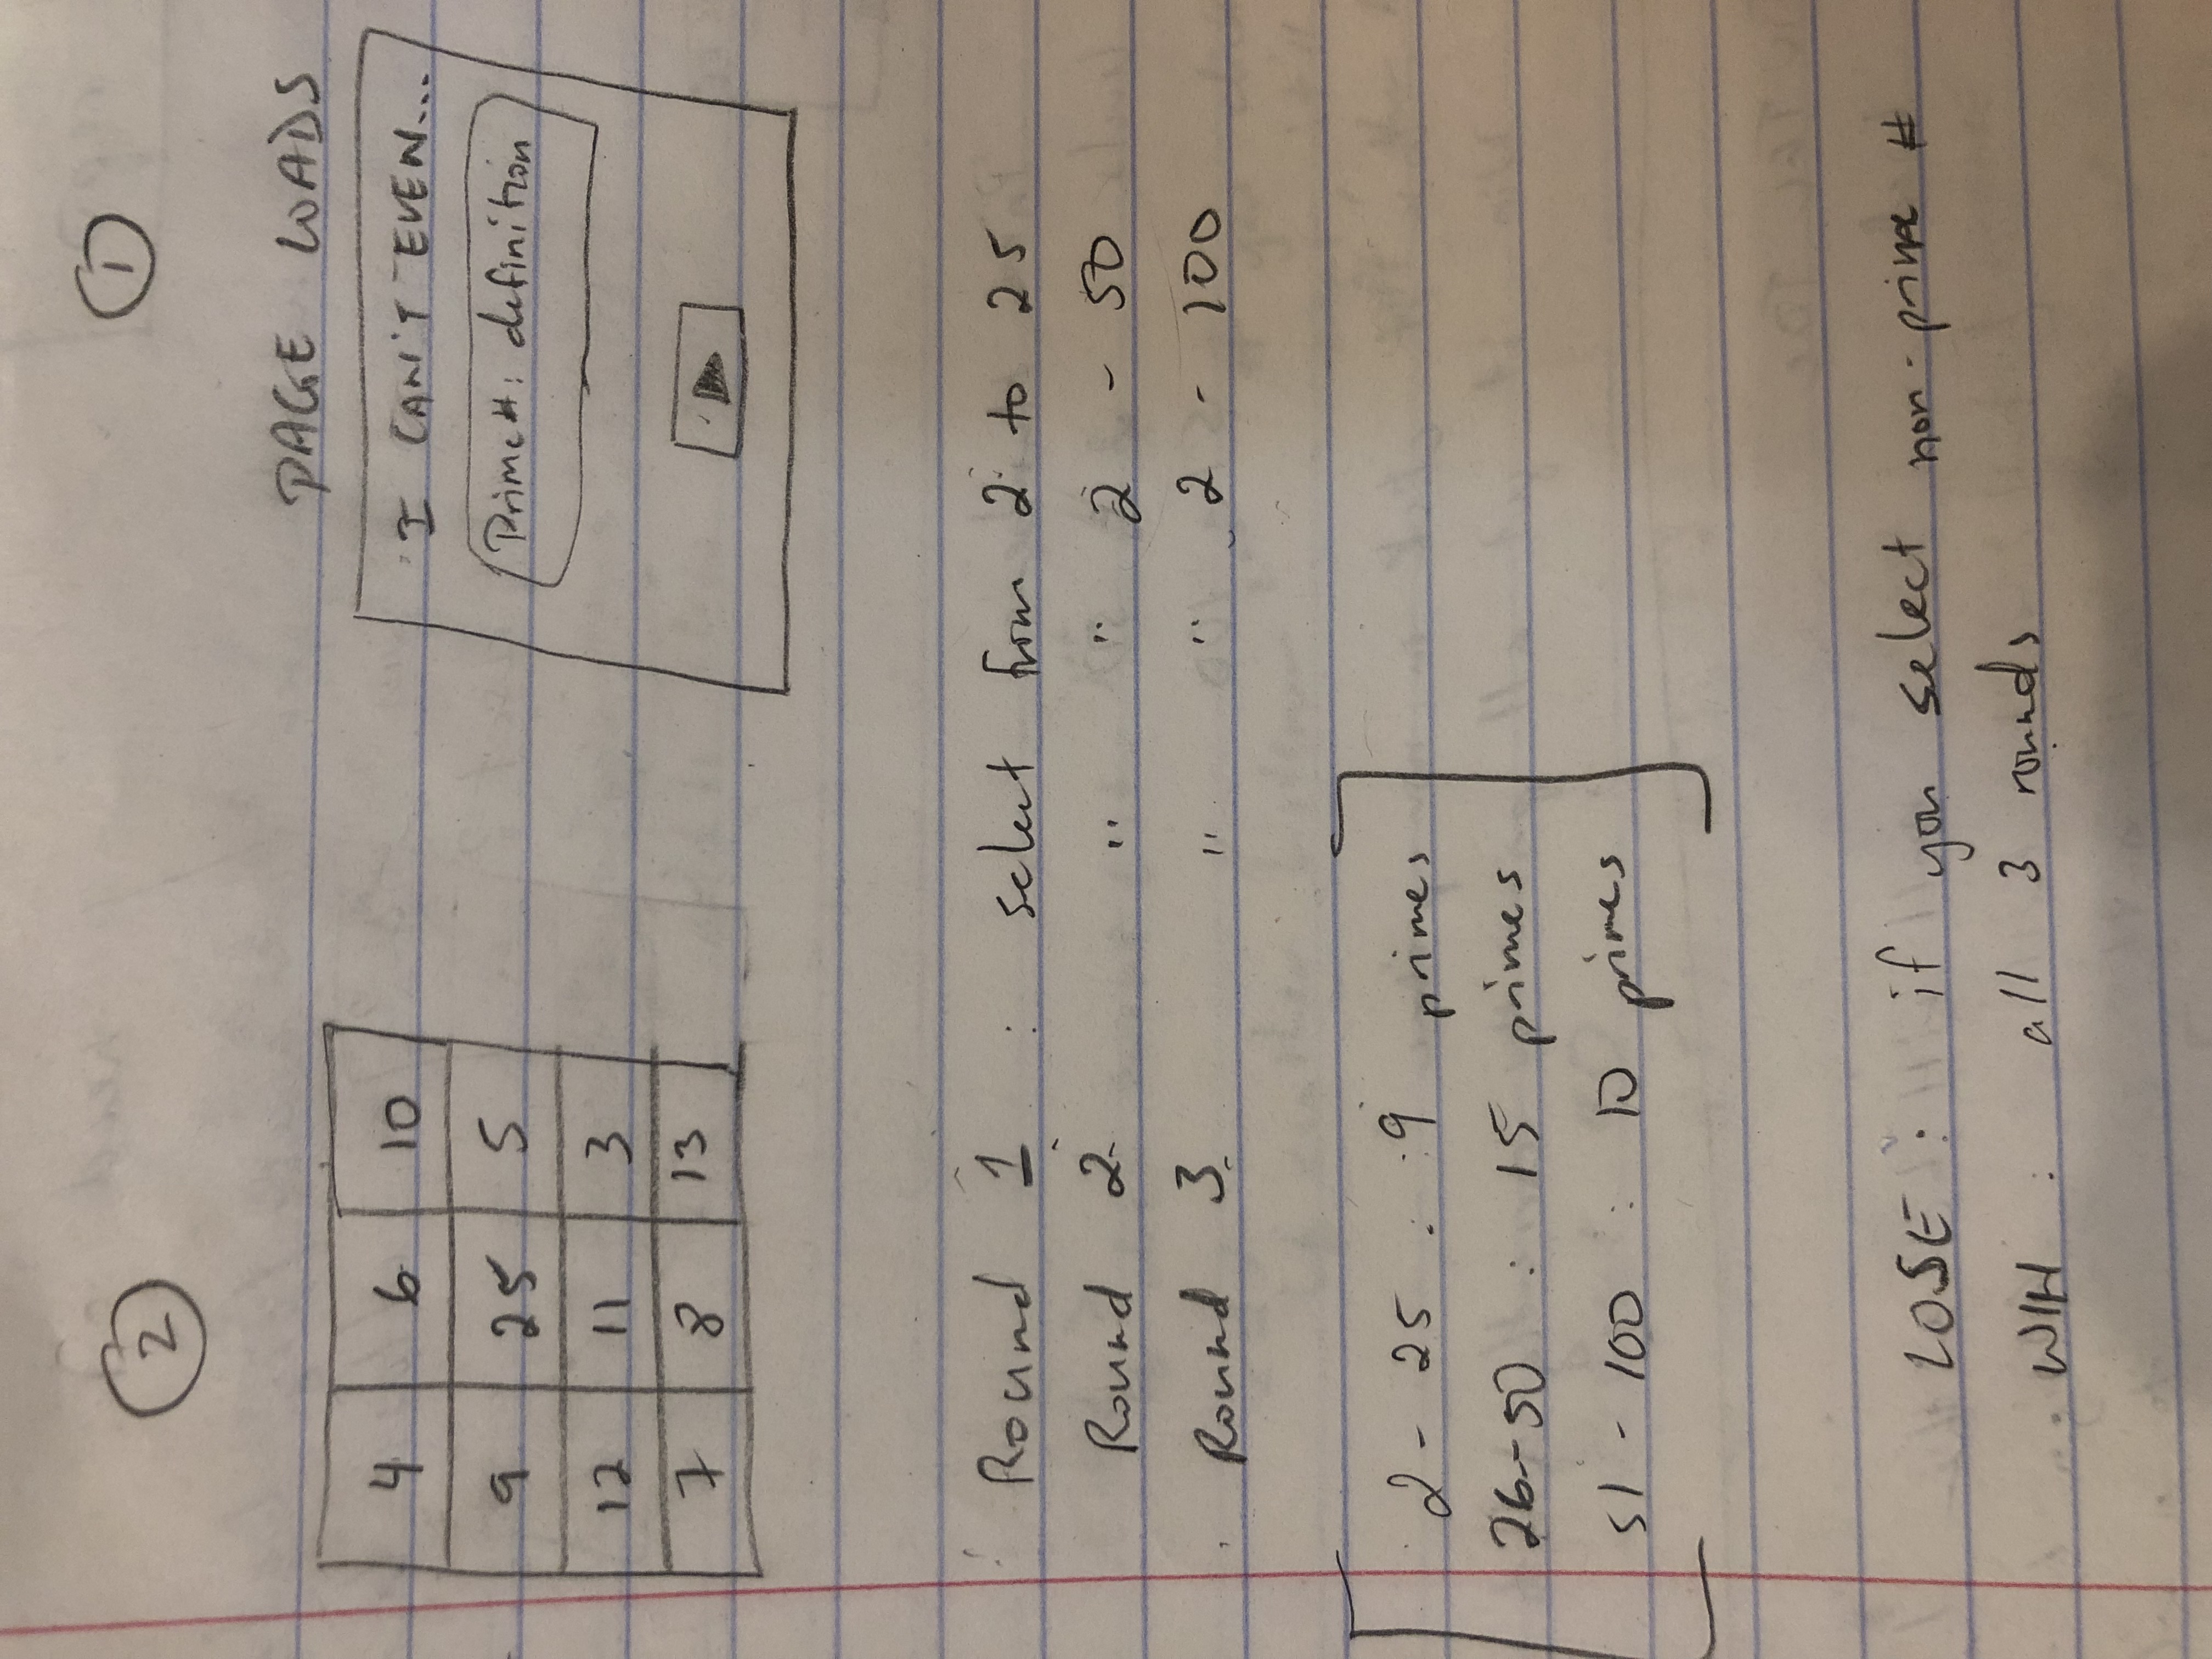 2
4 6 10
9 25 5
12 11 3
7 8 13
1
PAGE LOADS
I CAN'T EVEN...
Prime #: definition
Round 1 : select from 2 to 25
Round 2 " " 2 - 50
Round 3 " " 2 - 100
2 - 25 : 9 primes
26 - 50 : 15 primes
51 - 100 : 10 primes
LOSE : if you select non-prime #
WIN : all 3 rounds